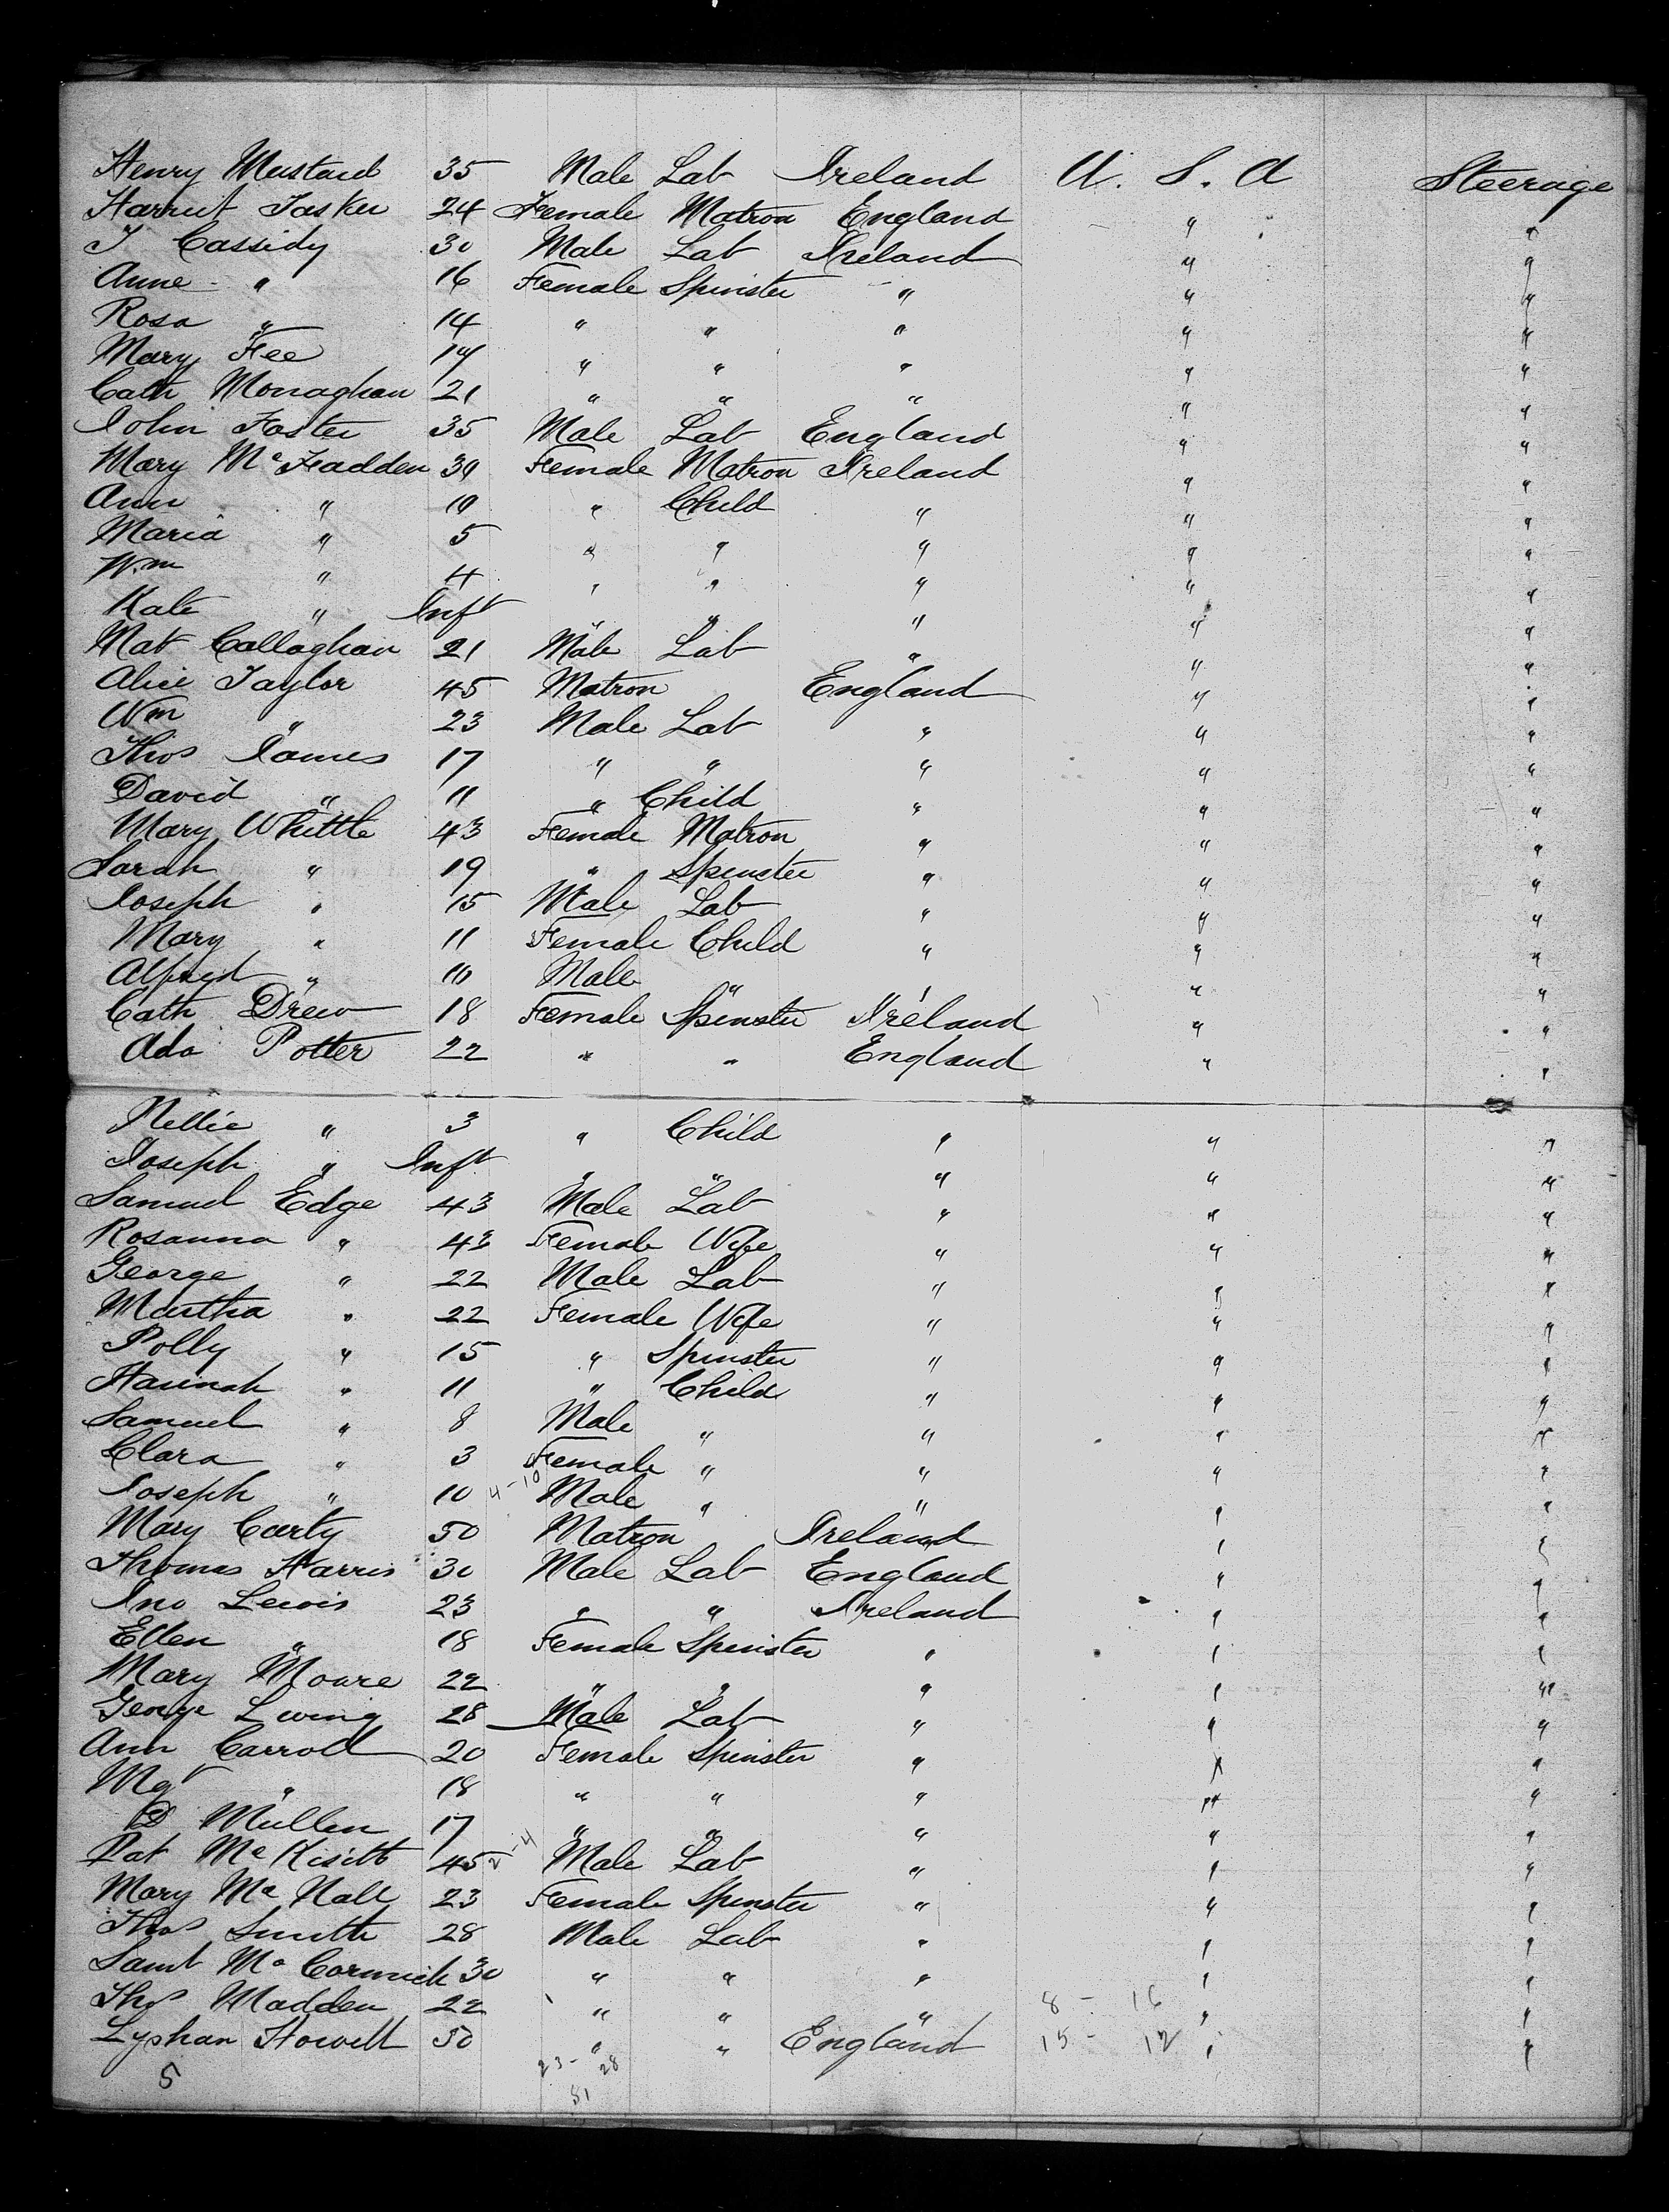 Henry Mustard 35 Male Lab Ireland U. S. A Steerage
Harriet Tasker 24 Female Matron England " "
J Cassidy 30 Male Lab Ireland " "
Anne " 16 Female Spinster " " "
Rosa " 14 " " " " "
Mary Fee 14 " " " " "
Cath Monaghan 21 " " " " "
John Foster 35 Male Lab England " "
Mary McFadden 30 Female Matron Ireland " "
Ann " 10 " Child " " "
Maria " 5 " " " " "
Wm " 4 " " " " "
Kate " Inft " " " " "
Mat Callaghan 21 Male Lab " " "
Alice Taylor 45 Matron England " "
Wm " 23 Male Lab " " "
Thos James 17 " " " " "
David " 11 " Child " " "
Mary Whittle 43 Female Matron " " "
Sarah " 19 " Spinster " " "
Joseph " 15 Male Lab " " "
Mary " 11 Female Child " " "
Alfred " 10 Male " " " "
Cath Drew 18 Female Spinster Ireland " "
Ada Potter 22 " " England " "
Nellie " 3 " Child " " "
Joseph " Inft " " " " "
Samuel Edge 43 Male Lab " " "
Rosanna " 43 Female Wife " " "
George " 22 Male Lab " " "
Martha " 22 Female Wife " " "
Polly " 15 " Spinster " " "
Hannah " 11 " Child " " "
Samuel " 8 Male " " " "
Clara " 3 Female " " " "
Joseph " 10 4-10 Male " " " "
Mary Carty 50 Matron Ireland " "
Thomas Harris 30 Male Lab England " "
Jno Lewis 23 " " Ireland " "
Ellen " 18 Female Spinster " " "
Mary Moore 22 " " " " "
George 28 Male Lab " " "
Ann Carroll 20 Female Spinster " " "
Mgt " 18 " " " " "
Mullen 17 " " " " "
Pat 45 2-4 Male Lab " " "
Mary McNall 23 Female Spinster " " "
Thos Smith 28 Male Lab " " "
Saml McCormick 30 " " " " "
Thos Madden 22 " " " 8 - 16 " "
Howell 50 " " England 15 - 12 " "
5 23- 28
51